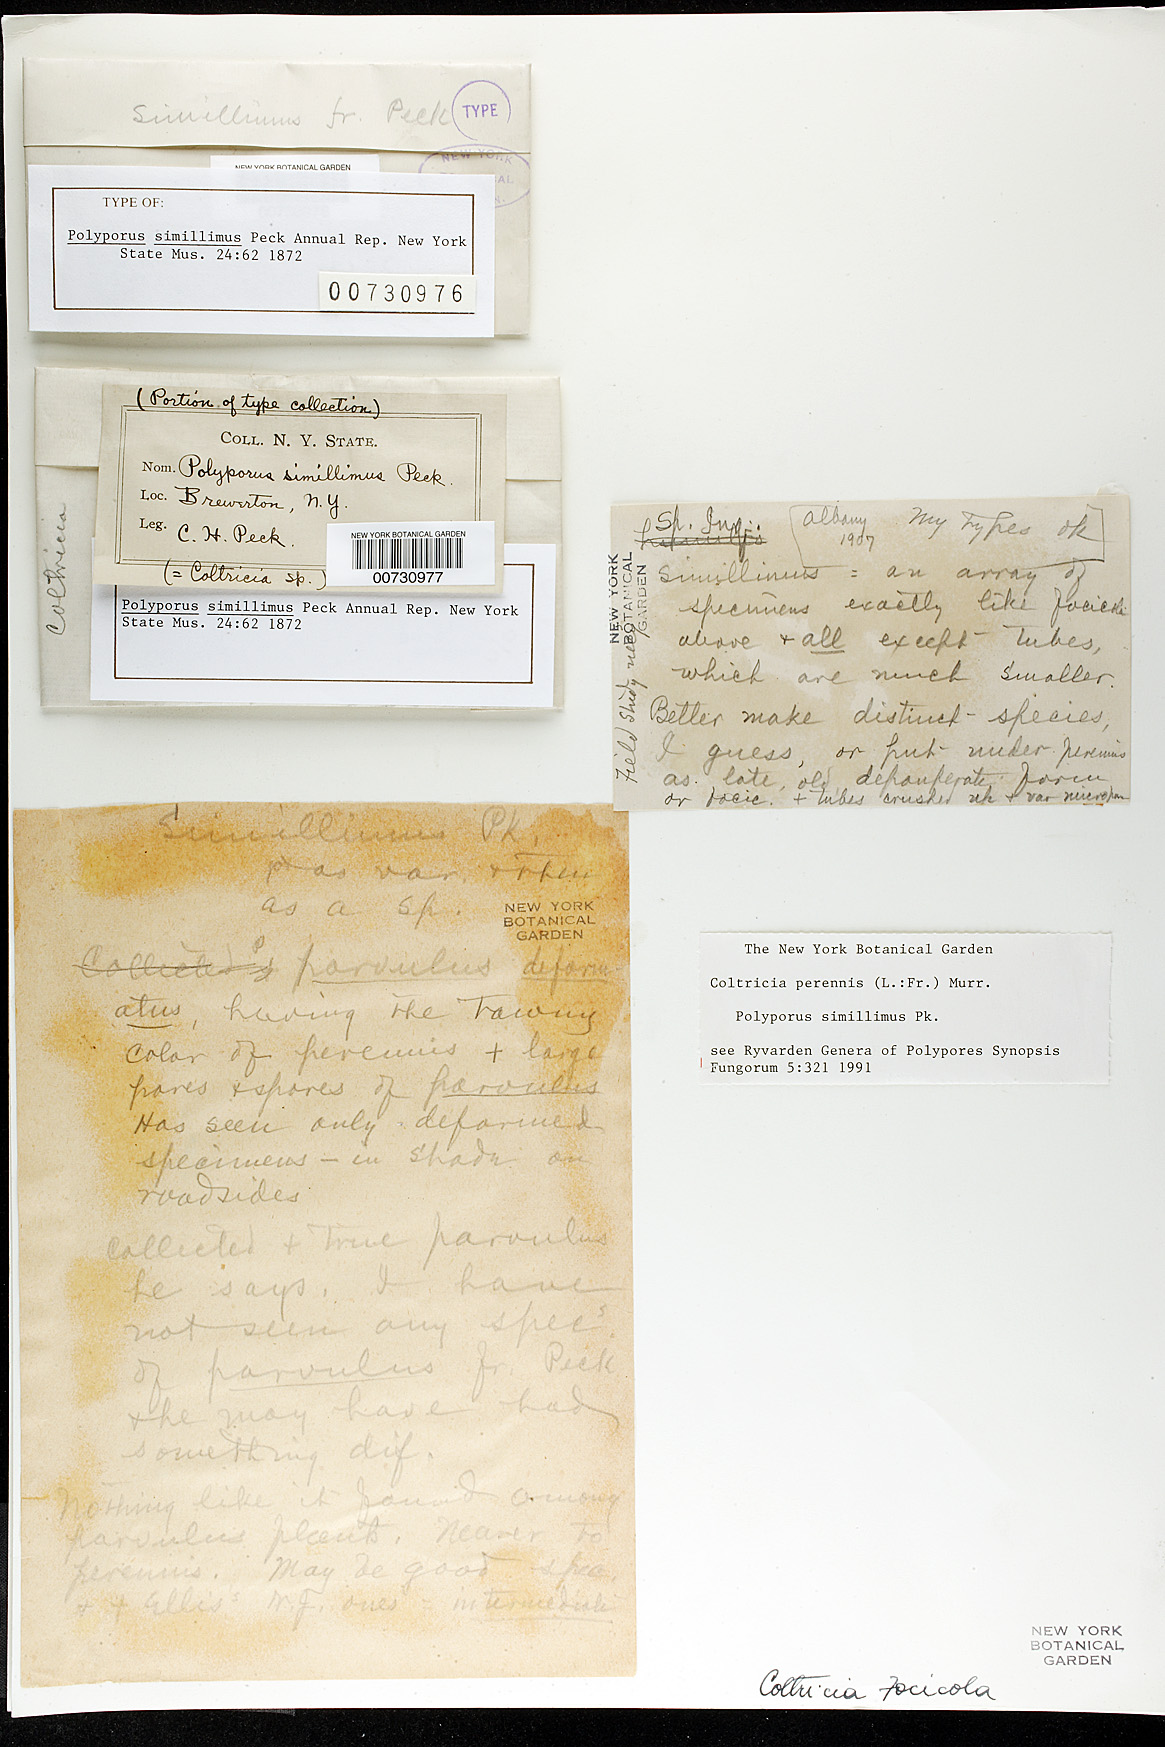 Simillimus fr. Peck
TYPE
NEW YORK
NEW YORK BOTANICAL GARDEN
TYPE OF:
Polyporus simillimus Peck Annual Rep. New York
State Mus. 24:62 1872
00730976
(Portion of type collection)
COLL. N. Y. STATE.
Nom. Polyporus simillimus Peck.
Loc. Brewerton, N.Y.
Leg. C. H. Peck.
(= Coltricia sp.)
NEW YORK BOTANICAL GARDEN
00730977
Polyporus simillimus Peck Annual Rep. New York
State Mus. 24:62 1872
Coltricia
Sp. Inq.:
Albany 1907 My types ok
simillimus = an array of
specimens exactly like focicola
above + all except tubes,
which are much smaller.
Better make distinct species,
I guess, or put under perennis
as late, old, depauperate form
or focic. + tubes crushed up + var
Field Study need
NEW YORK
BOTANICAL
GARDEN
Simillimus Pk.
as var. + then
as a sp.
NEW YORK
BOTANICAL
GARDEN
Collected parvulus deform-
atus, having the tawny
color of perennis + large
pores + spores of parvulus
Has seen only deformed
specimens – in shade on
roadsides
Collected + true parvulus
he says. I have
not seen any specs
of parvulus fr. Peck
+ he may have had
something dif.
Nothing like it found among
parvulus plants. Nearer to
perennis. May be good spec.
+ + Ellis' N.J. ones = intermediate
The New York Botanical Garden
Coltricia perennis (L.:Fr.) Murr.
Polyporus simillimus Pk.
see Ryvarden Genera of Polypores Synopsis
Fungorum 5:321 1991
NEW YORK
BOTANICAL
GARDEN
Coltricia focicola